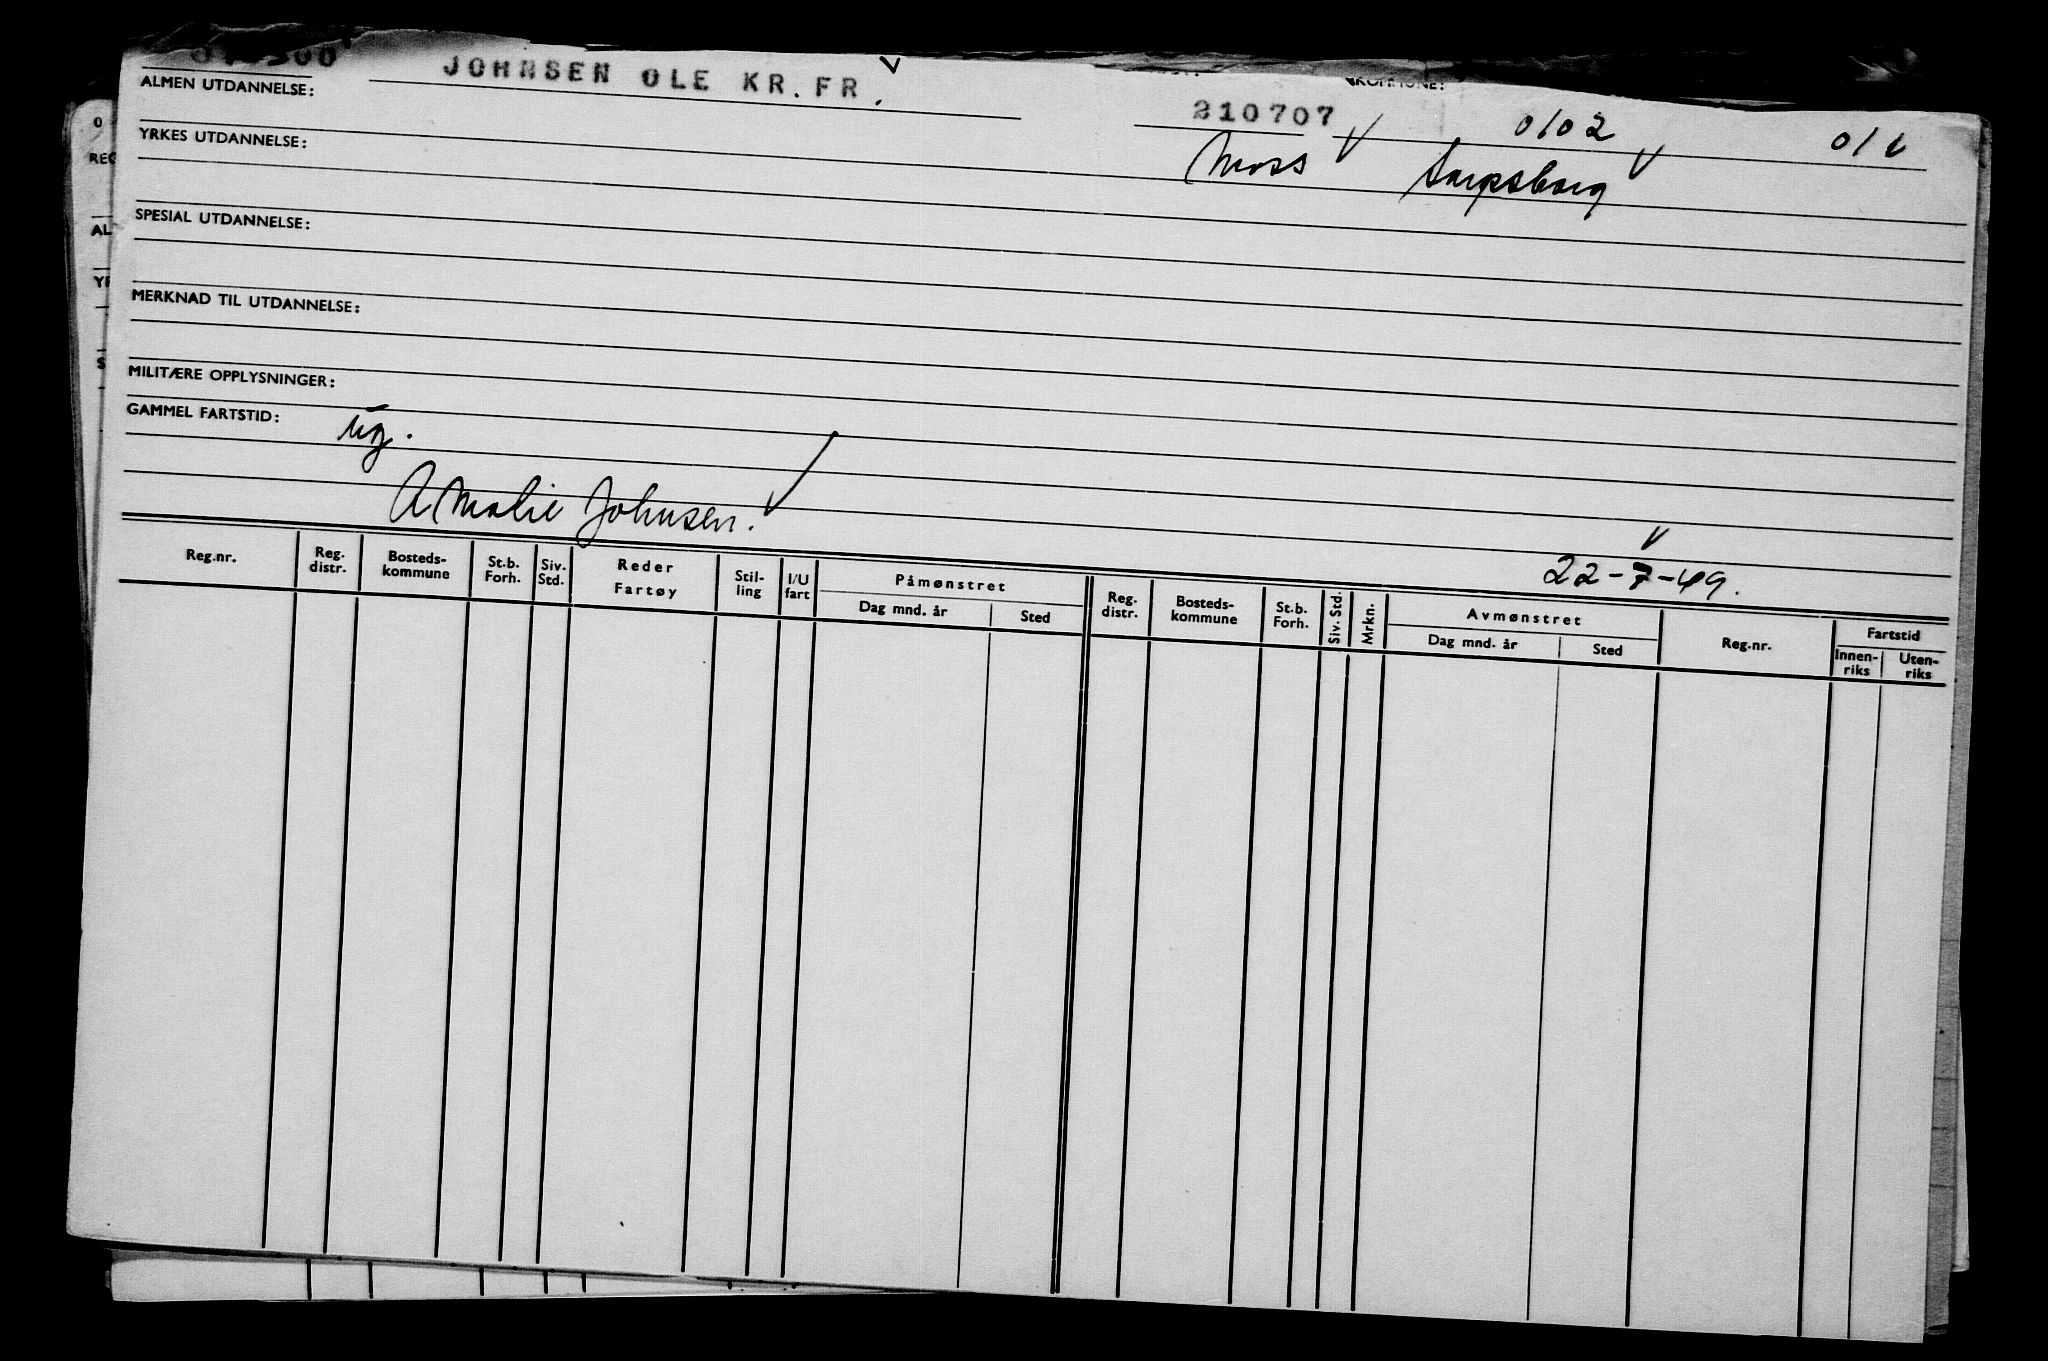 JOHNSEN OLE KR. FR.
KOMMUNE:
ALMEN UTDANNELSE:
210707
0102
YRKES UTDANNELSE:
Moss Sarpsborg
SPESIAL UTDANNELSE:
MERKNAD TIL UTDANNELSE:
MILITÆRE OPPLYSNINGER:
GAMMEL FARTSTID:
ug.
Amalie Johnsen.
22-7-49.
Reg.nr. Reg. distr. Bosteds-kommune St.b. Forh. Siv. Std. Reder Fartøy Stil-ling I/U fart Påmønstret Dag mnd. år Sted Reg. distr. Bosteds-kommune St.b. Forh. Siv. Std. Mrkn. Avmønstret Dag mnd. år Sted Reg.nr. Fartstid Innen-riks Uten-riks